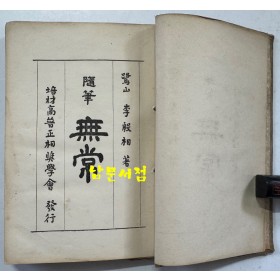 鷺山 李殷相 著
隨筆 無常
培材高普正相奬學會 發行
남문서점